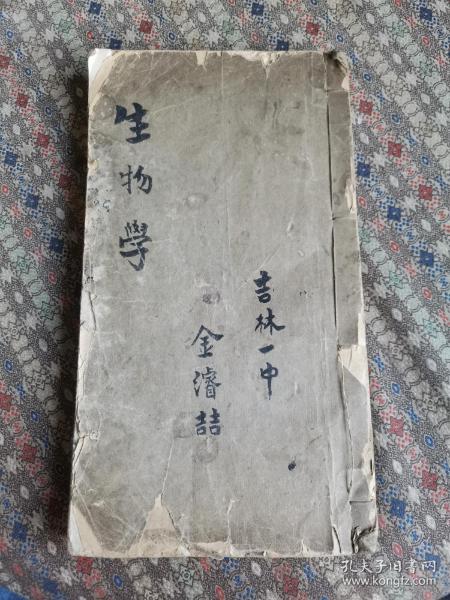 生物學
吉林一中
金濬喆
孔夫子旧书网
www.kongfz.com